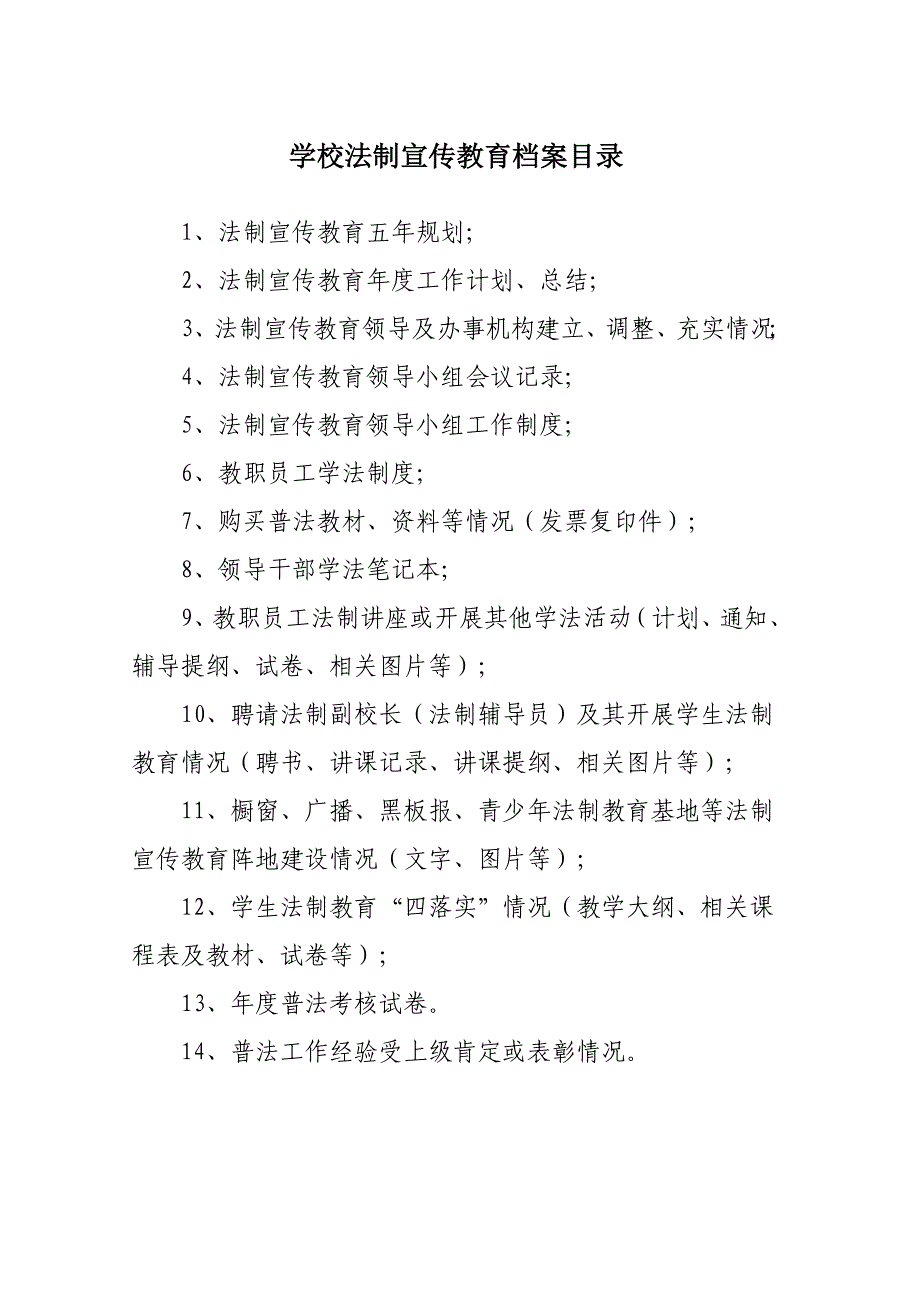 学校法制宣传教育档案目录
1、法制宣传教育五年规划;
2、法制宣传教育年度工作计划、总结;
3、法制宣传教育领导及办事机构建立、调整、充实情况;
4、法制宣传教育领导小组会议记录;
5、法制宣传教育领导小组工作制度;
6、教职员工学法制度;
7、购买普法教材、资料等情况（发票复印件）;
8、领导干部学法笔记本;
9、教职员工法制讲座或开展其他学法活动（计划、通知、
辅导提纲、试卷、相关图片等）;
10、聘请法制副校长（法制辅导员）及其开展学生法制
教育情况（聘书、讲课记录、讲课提纲、相关图片等）;
11、橱窗、广播、黑板报、青少年法制教育基地等法制
宣传教育阵地建设情况（文字、图片等）;
12、学生法制教育“四落实”情况（教学大纲、相关课
程表及教材、试卷等）;
13、年度普法考核试卷。
14、普法工作经验受上级肯定或表彰情况。